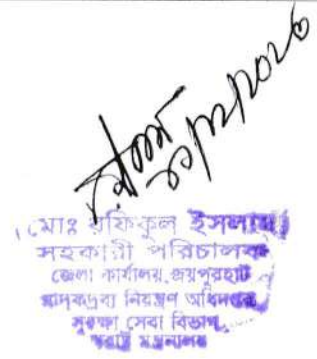 ৩১/১২/২০২৩
মোঃ রফিকুল ইসলাম
সহকারী পরিচালক
জেলা কার্যালয়, জয়পুরহাট
মাদকদ্রব্য নিয়ন্ত্রণ অধিদপ্তর
সুরক্ষা সেবা বিভাগ,
স্বরাষ্ট্র মন্ত্রনালয়